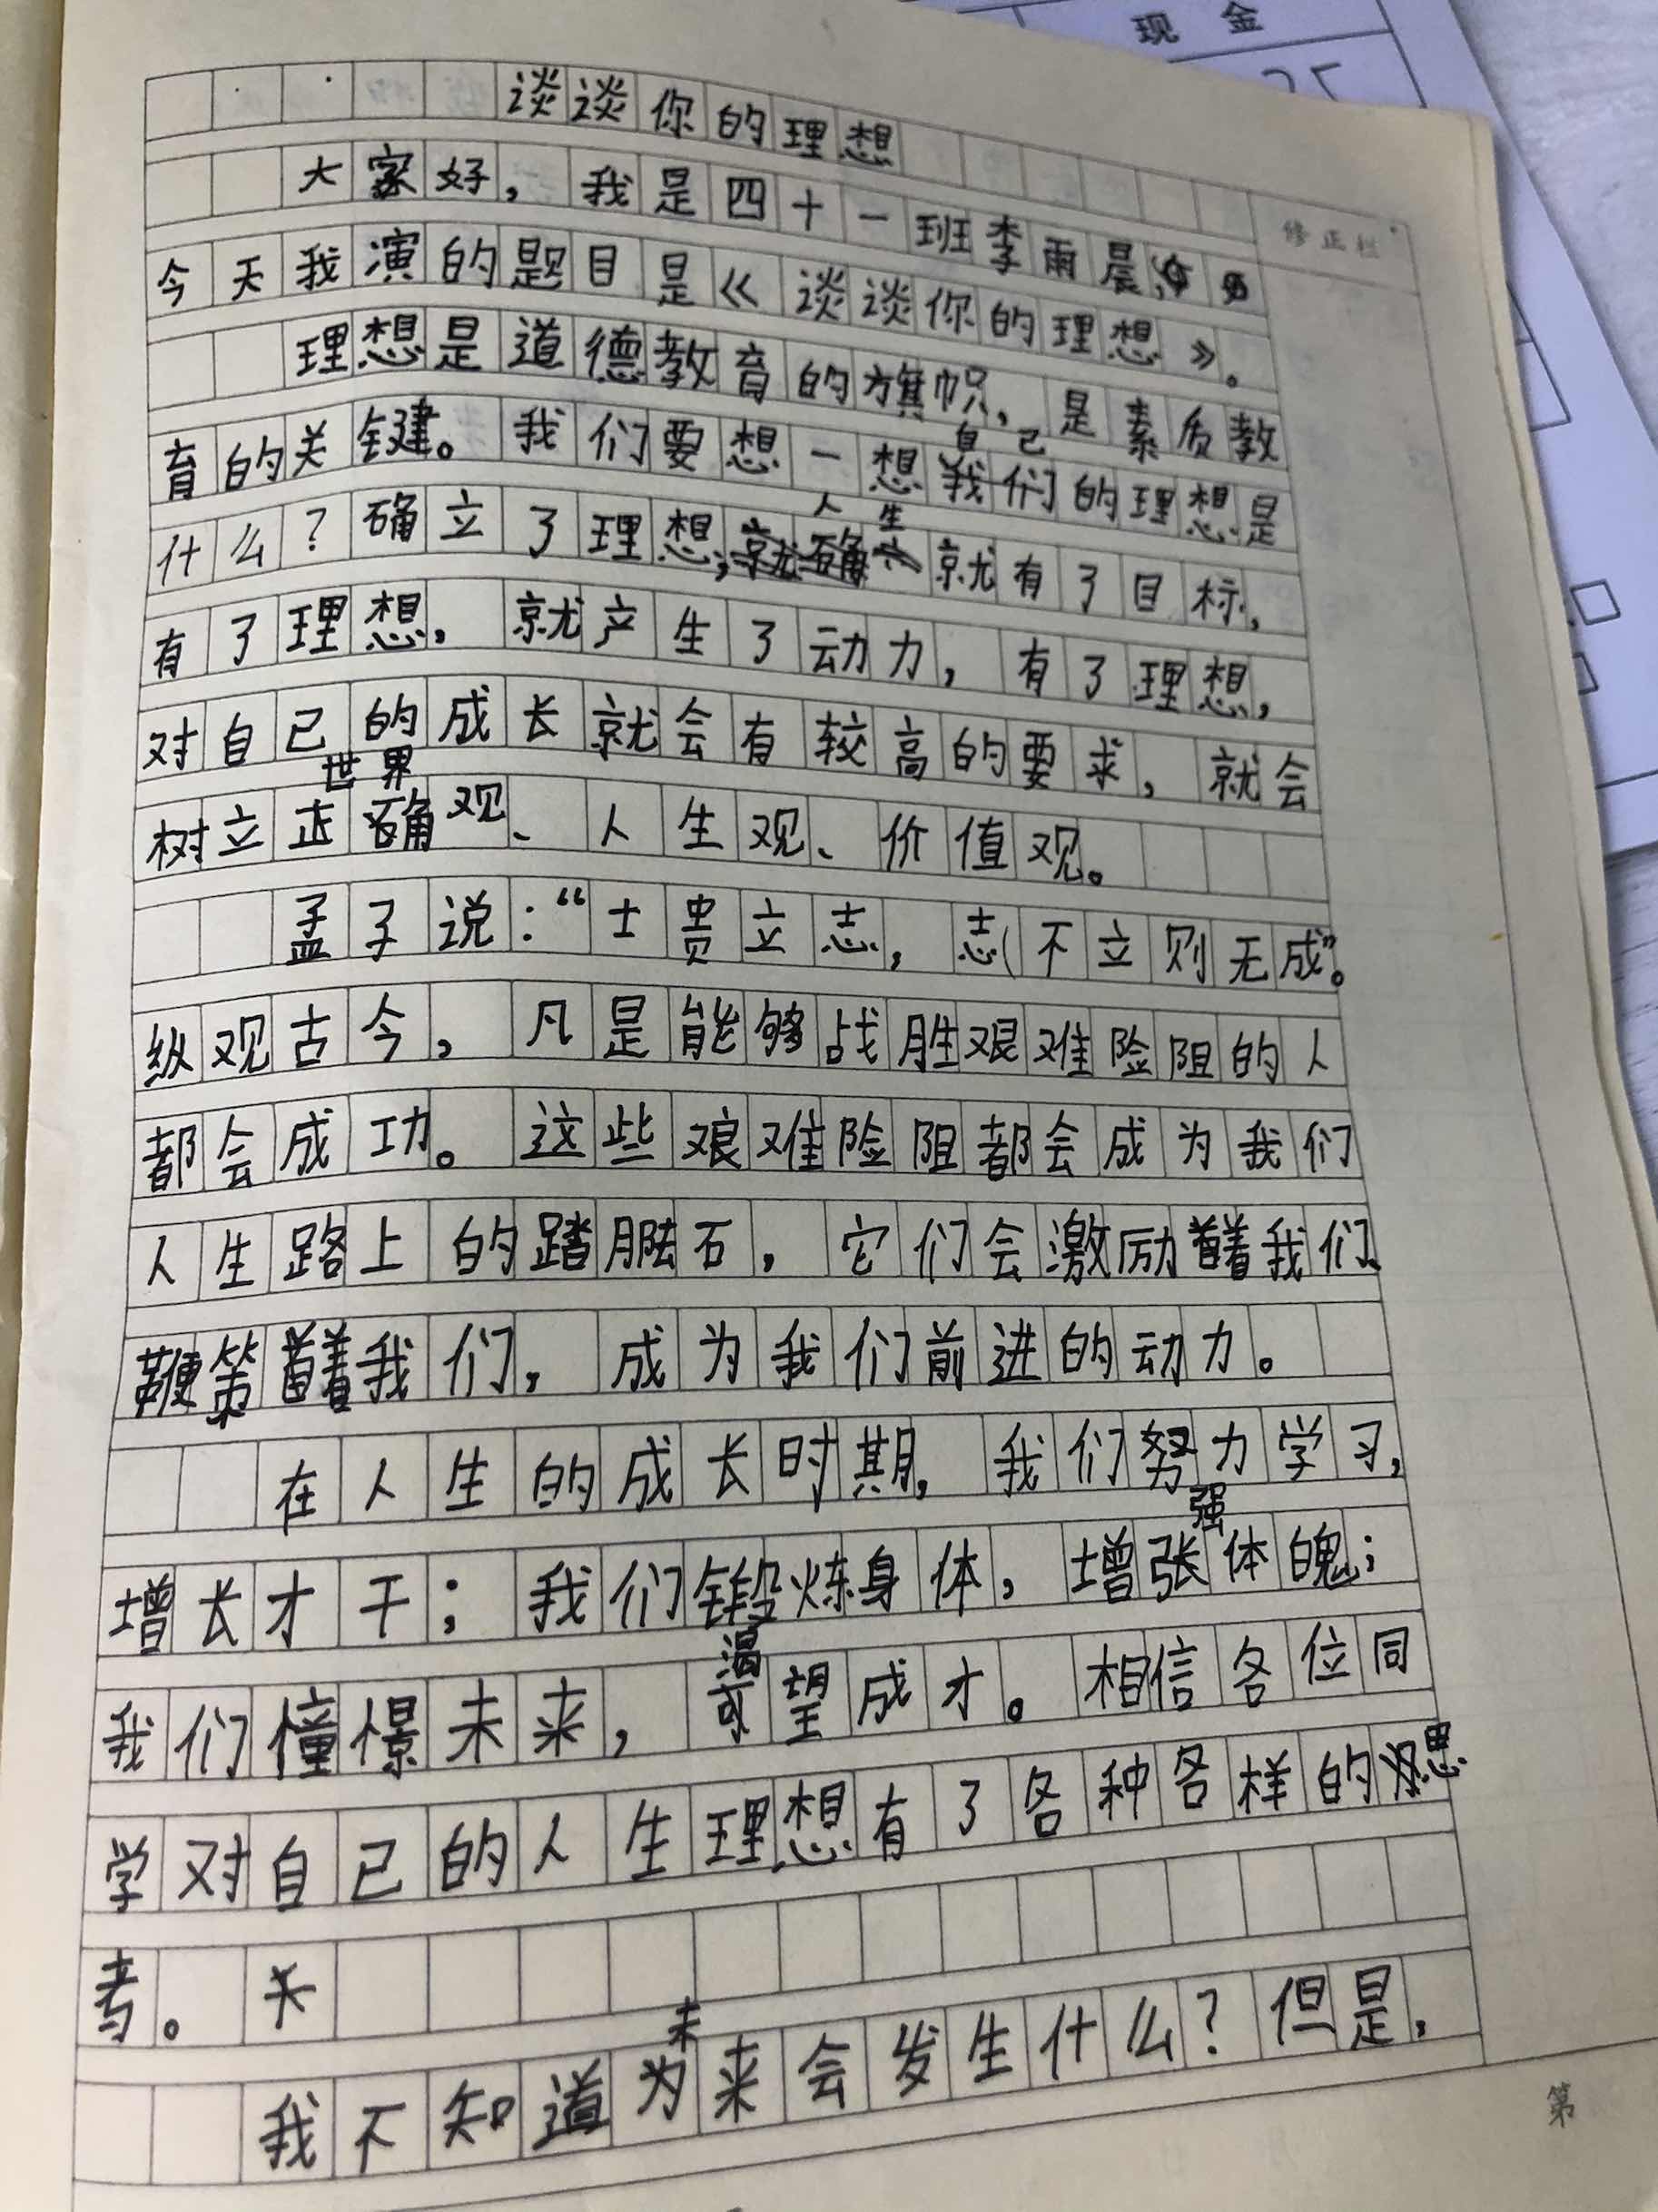 现金
谈谈你的理想
大家好，我是四十一班李雨晨，
修正栏
今天我演的题目是《谈谈你的理想》。
理想是道德教育的旗帜，是素质教
自己
育的关键。我们要想一想我们的理想是
人生
什么？确立了理想，就确立就有了目标，
有了理想，就产生了动力，有了理想，
对自己的成长就会有较高的要求，就会
世界
树立正确观、人生观、价值观。
孟子说：“士贵立志，志不立则无成”。
纵观古今，凡是能够战胜艰难险阻的人
都会成功。这些艰难险阻都会成为我们
人生路上的踏脚石，它们会激励着我们、
鞭策着我们，成为我们前进的动力。
在人生的成长时期，我们努力学习，
强
增长才干；我们锻炼身体，增张体魄；
渴
我们憧憬未来，可望成才。相信各位同
学对自己的人生理想有了各种各样的思
考。
未
我不知道为来会发生什么？但是，
第